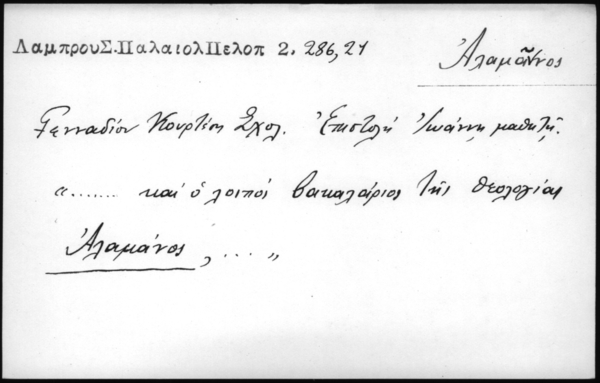 ΛαμπρουΣ.ΠαλαιολΠελοπ 2. 286,21
Ἀλαμᾶνος
Γενναδίου Κουρτέση Σχολ. Ἐπιστολὴ Ἰωάννῃ μαθητῇ.
«........ καὶ ὁ λοιπὸς βακαλάριος τῆς θεολογίας
Ἀλαμάνος, ... »